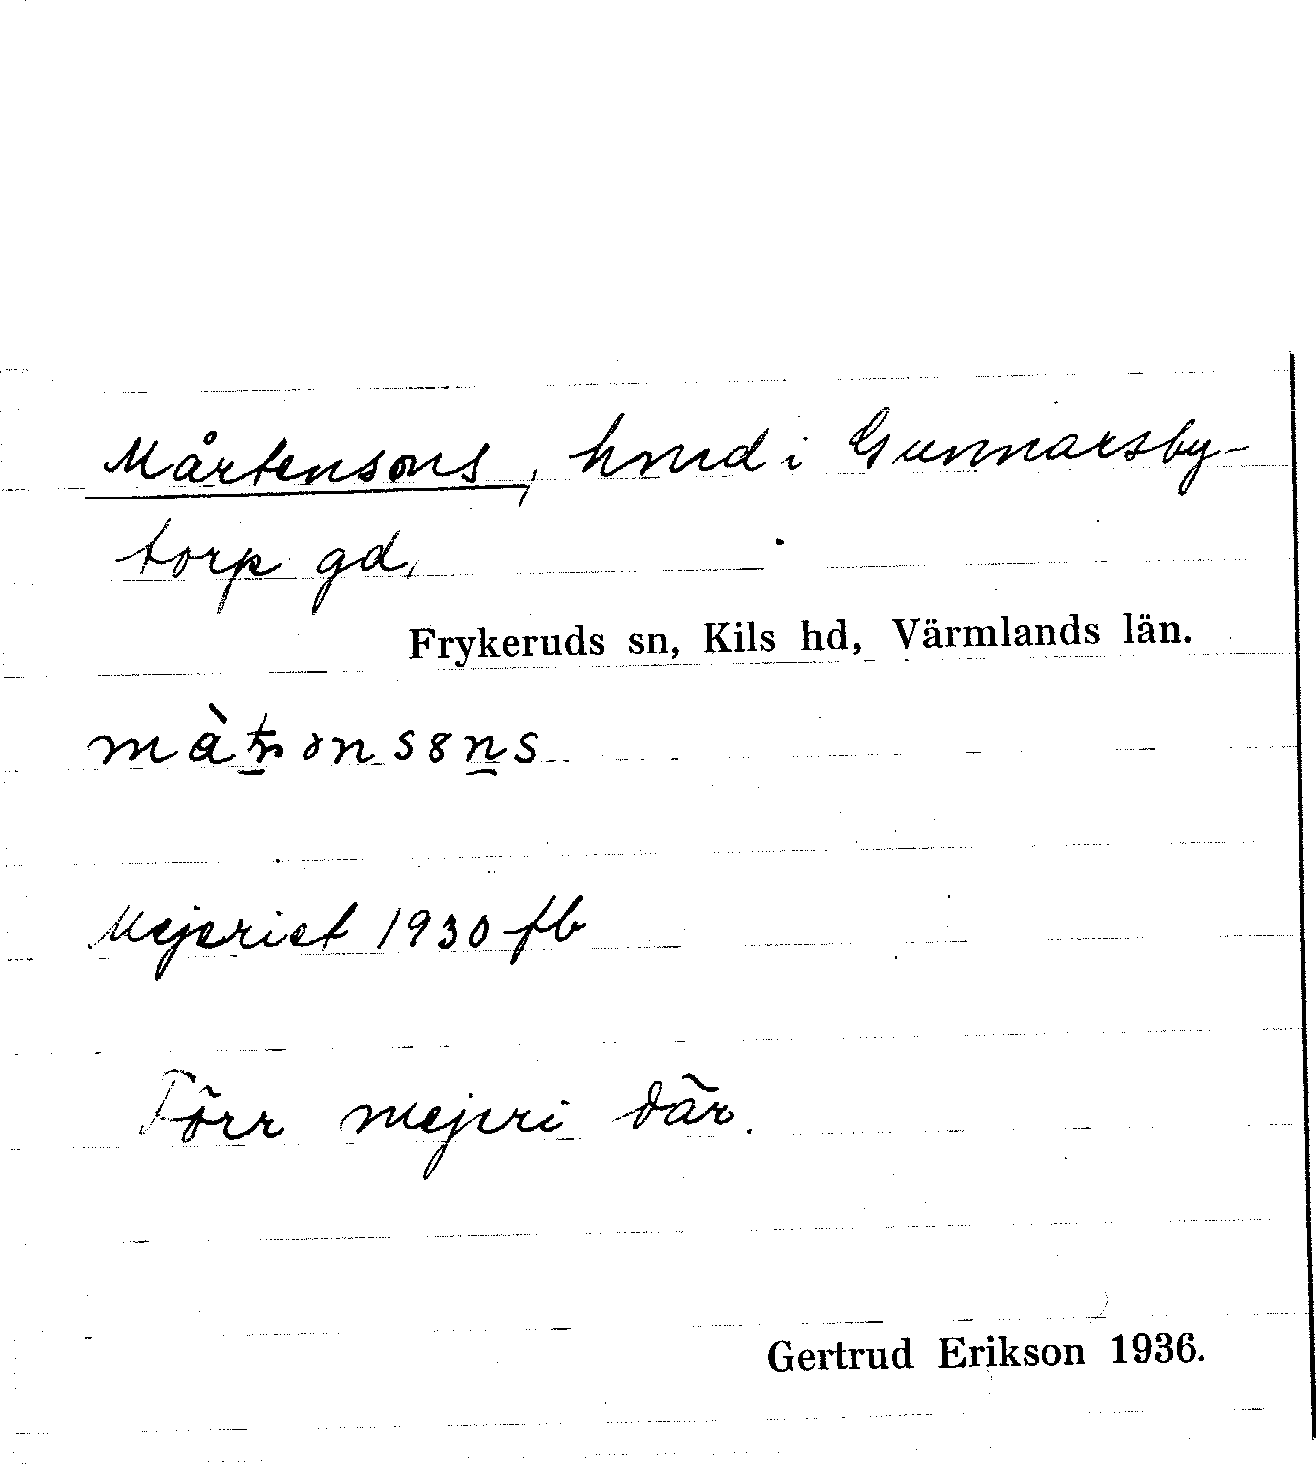 Mårtensons, hmd i Gunnarsby-
torp gd.
Frykeruds sn, Kils hd, Värmlands län.
Mejeriet 1930 fb
Förr mejeri där.
Gertrud Erikson 1936.